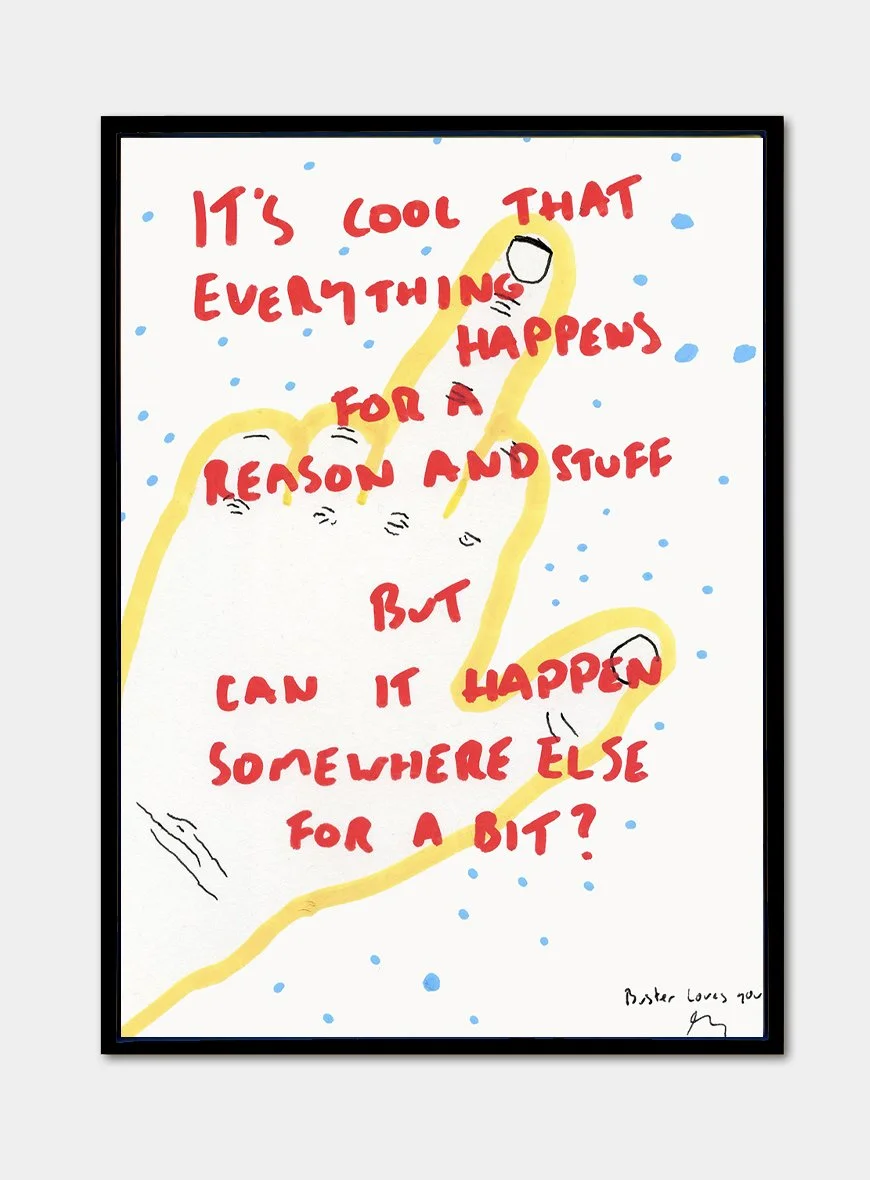 IT'S COOL THAT
EVERYTHING
HAPPENS
FOR A
REASON AND STUFF
BUT
CAN IT HAPPEN
SOMEWHERE ELSE
FOR A BIT?
Buster Loves you